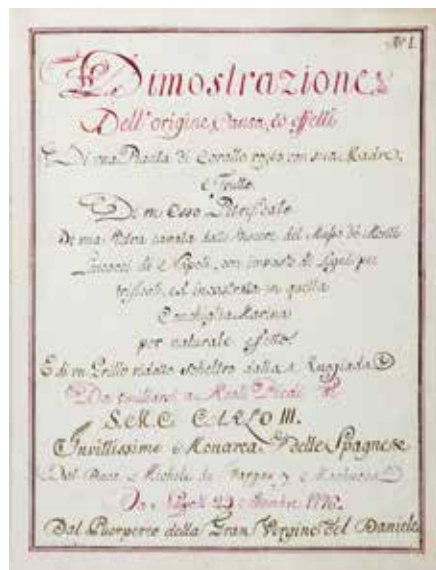 Nº I.
Dimostrazione
Dell'origine, Causa, ed effetti
Di una Pianta di Corallo rosso con sua Madre,
e Frutto.
Di un Osso Petrificato
Di una Pietra cavata dalle viscere del Masso de Monti
di Napoli, con impasto di
ed incastrata in quella
Conchiglia Marina
per naturale effetto.
E di un Grillo ridotto scheltro dalla Rugiada
Da umiliarsi a Reali Piedi
S.M.C. CARLO III.
Invittissimo Monarca Delle Spagne
Dal Michele de Vargas y Machuca
Da Napoli
Dal Puerperio della Gran Vergine del Daniele